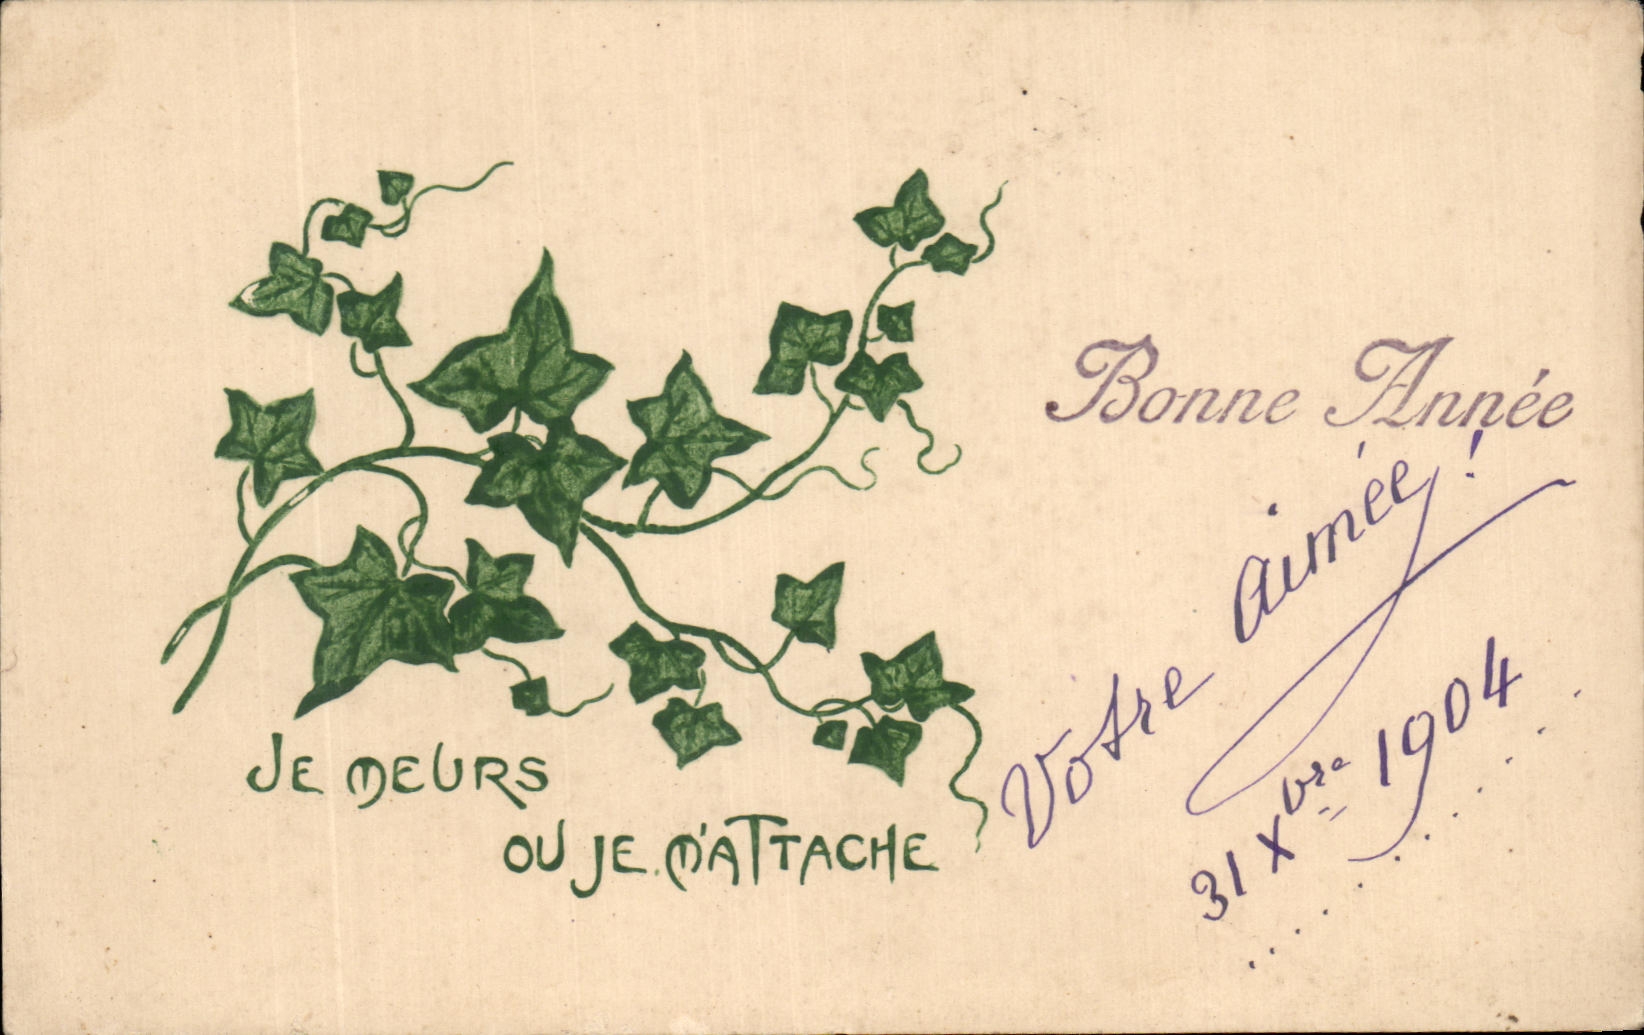 JE MEURS
OU JE M'ATTACHE
Bonne Année
Votre aimée !
31 Xbre 1904